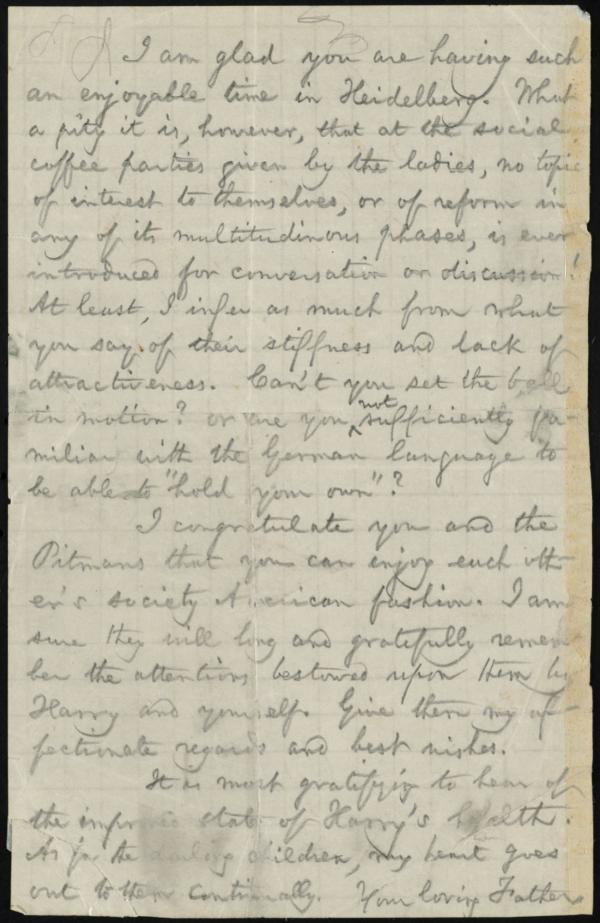 I am glad you are having such
an enjoyable time in Heidelberg. What
a pity it is, however, that at the social
coffee parties given by the ladies, no topic
of interest to themselves, or of reform in
any of its multitudinous phases, is ever
introduced for conversation or discussion!
At least, I infer as much from what
you say of their stiffness and lack of
attractiveness. Can't you set the ball
in motion? or are you not sufficiently fa-
miliar with the German language to
be able to "hold your own"?
I congratulate you and the
Pitmans that you can enjoy each oth-
er's society American fashion. I am
sure they will long and gratefully remem-
ber the attentions bestowed upon them by
Harry and yourself. Give them my af-
fectionate regards and best wishes.
It is most gratifying to hear of
the improved state of Harry's health.
As for the darling children, my heart goes
out to them continually. Your loving Father.